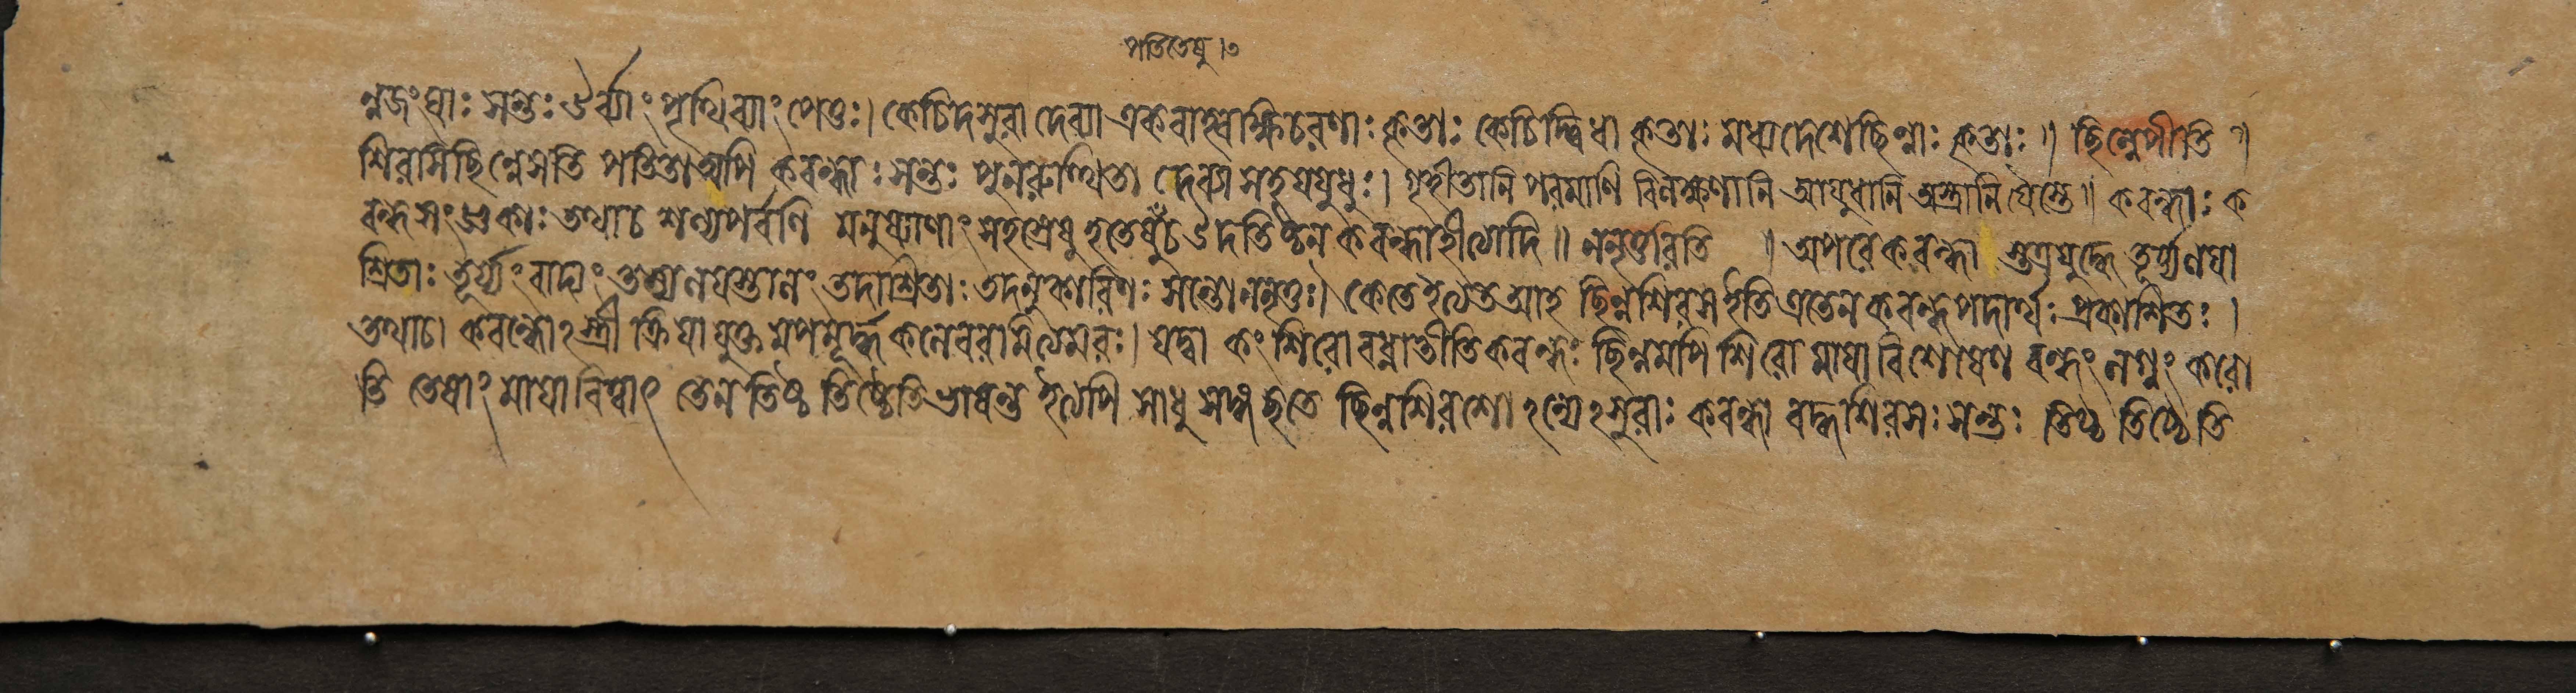 পতিতেষু ।৩
ন্নজংঘাঃ সন্তঃ ঊর্ব্ব্যাং পৃথিব্যাং পেতুঃ। কেচিদসুরা দেব্যা একবাহ্বক্ষিচরণাঃ কৃতাঃ কেচিদ্দ্বিধা কৃতাঃ মধ্যদেশে ছিন্নাঃ কৃতাঃ ॥ ছিন্নেপীতি ॥
শিরসি ছিন্নে সতি পতিতা অপি কবন্ধাঃ সন্তঃ পুনরুত্থিতা দেব্যা সহ যুযুধুঃ। গৃহীতানি পরমাণি বিলক্ষণানি আয়ুধানি অস্ত্রানি যৈস্তে॥ কবন্ধাঃ ক
বন্ধসংজ্ঞকাঃ তথাচ শল্যপর্বণি মনুষ্যাণাং সহস্রেষু হতেষুচ উদতিষ্ঠন কবন্ধাহীত্যাদি॥ ননৃতুরিতি ॥ অপরে কবন্ধা স্তত্র যুদ্ধে তূর্য্যলয়া
শ্রিতাঃ তূর্য্যং বাদ্যং তস্য লয়স্তালং তদাশ্রিতাঃ তদনুকারিণঃ সন্তো ননৃতুঃ। কেতে ইত্যত আহ ছিন্নশিরস ইতি এতেন কবন্ধপদার্থঃ প্রকাশিতঃ।
তথাচ। কবন্ধোঽস্ত্রী ক্রিয়াযুক্তমপমূর্দ্ধকলেবরমিত্যমরঃ। যদ্বা কং শিরো বধ্নাতীতি কবন্ধঃ ছিন্নমপি শিরো মায়াবিশেষেণ বন্ধং লগ্নং করো
তি তেষাং মায়াবিত্বাৎ তেন তিষ্ঠ তিষ্ঠেতি ভাষন্ত ইত্যপি সাধু সঙ্গচ্ছতে ছিন্নশিরসোঽন্যেঽসুরাঃ কবন্ধা বদ্ধশিরসঃ সন্তঃ তিষ্ঠ তিষ্ঠেতি